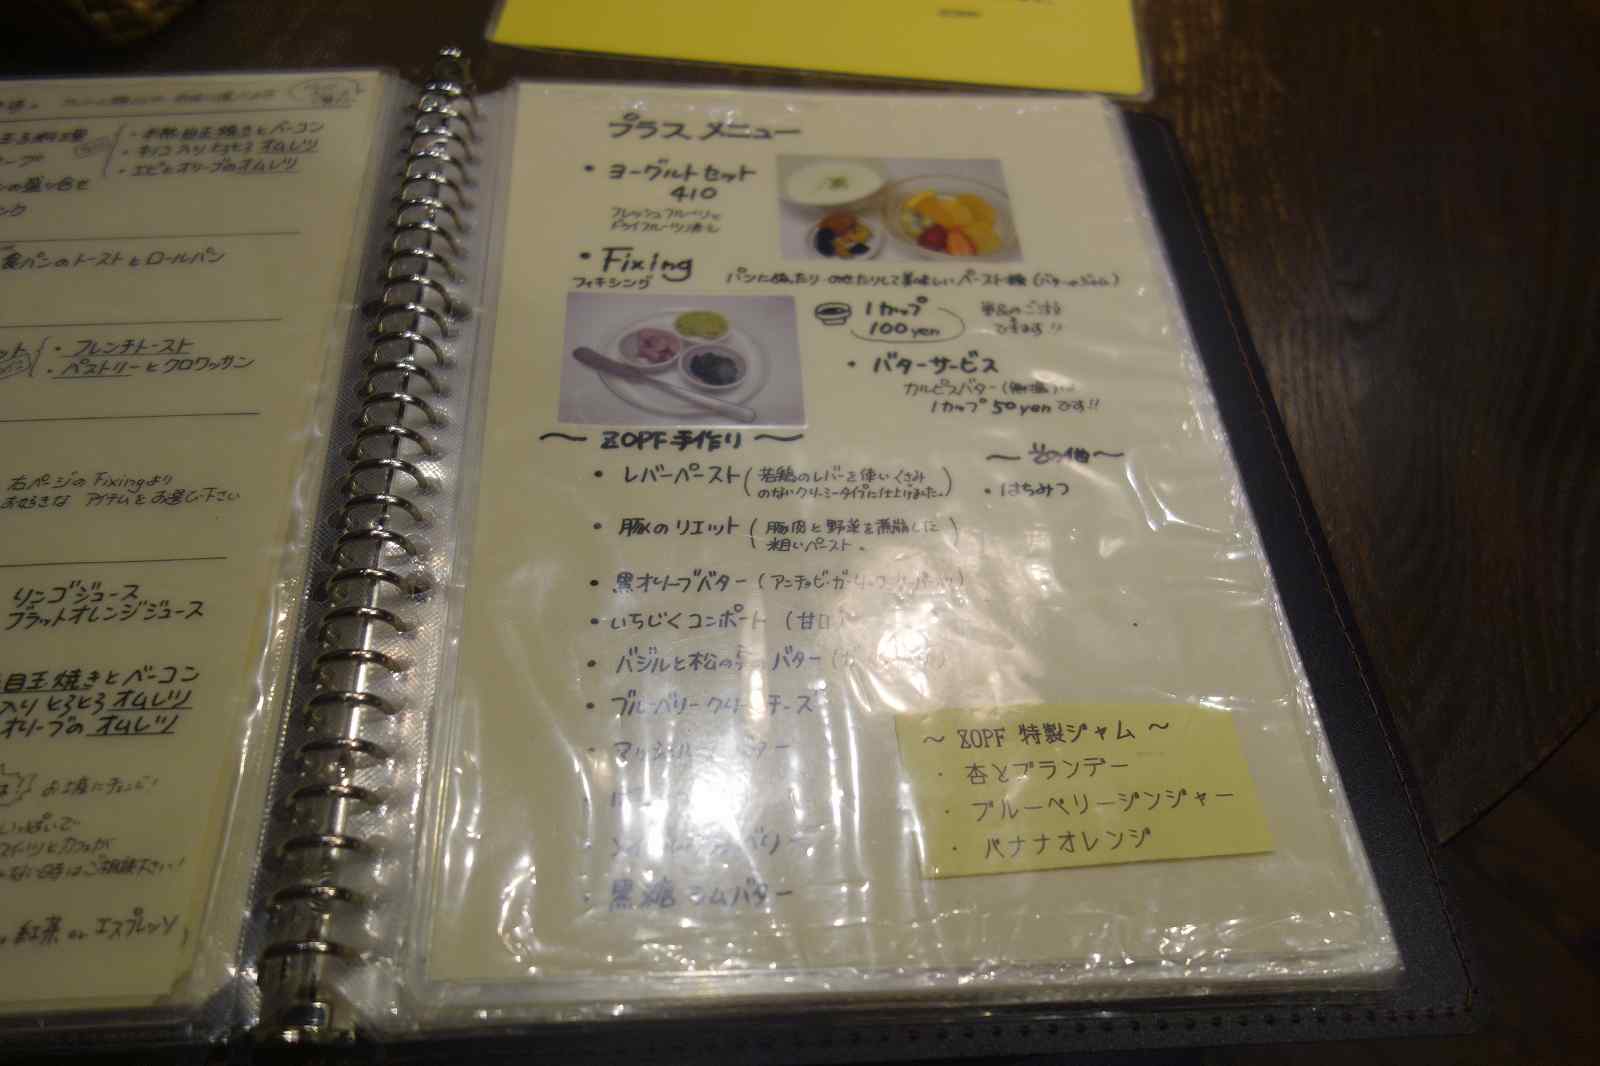 ・半熟目玉焼きとベーコン
・キノコ入りとろとろオムレツ
・エビとオリーブのオムレツ
の盛り合せ
食パンのトーストとロールパン
・フレンチトースト
・ペストリーとクロワッサン
右ページのFixingより
お好きな アイテムをお選び下さい
リンゴジュース
ブラットオレンジジュース
目玉焼きとベーコン
入りとろとろオムレツ
オリーブのオムレツ
いっぱいで
スイーツとカフェが
時はご相談下さい!
紅茶 or エスプレッソ
プラスメニュー
・ヨーグルトセット
410
フレッシュフルーツと
ドライフルーツ
・Fixing
フィキシング
パンにぬったり のせたりして美味しいペースト類(バターやジャム)
1カップ
100yen
単品のご注文
できます!!
・バターサービス
カルピスバター(無塩)
1カップ 50yenです!!
〜 ZOPF手作り 〜
・レバーペースト(若鶏のレバーを使いくさみ
のないクリーミータイプに仕上げました。)
・豚のリエット(豚肉と野菜を煮崩した
粗いペースト。
・黒オリーブバター(アンチョビ・ガーリック
・いちじくコンポート(甘口)
・バジルと松の実のバター
・ブルーベリークリームチーズ
・黒糖ラムバター
〜 その他 〜
・はちみつ
〜 ZOPF 特製ジャム 〜
・杏とブランデー
・ブルーベリージンジャー
・バナナオレンジ